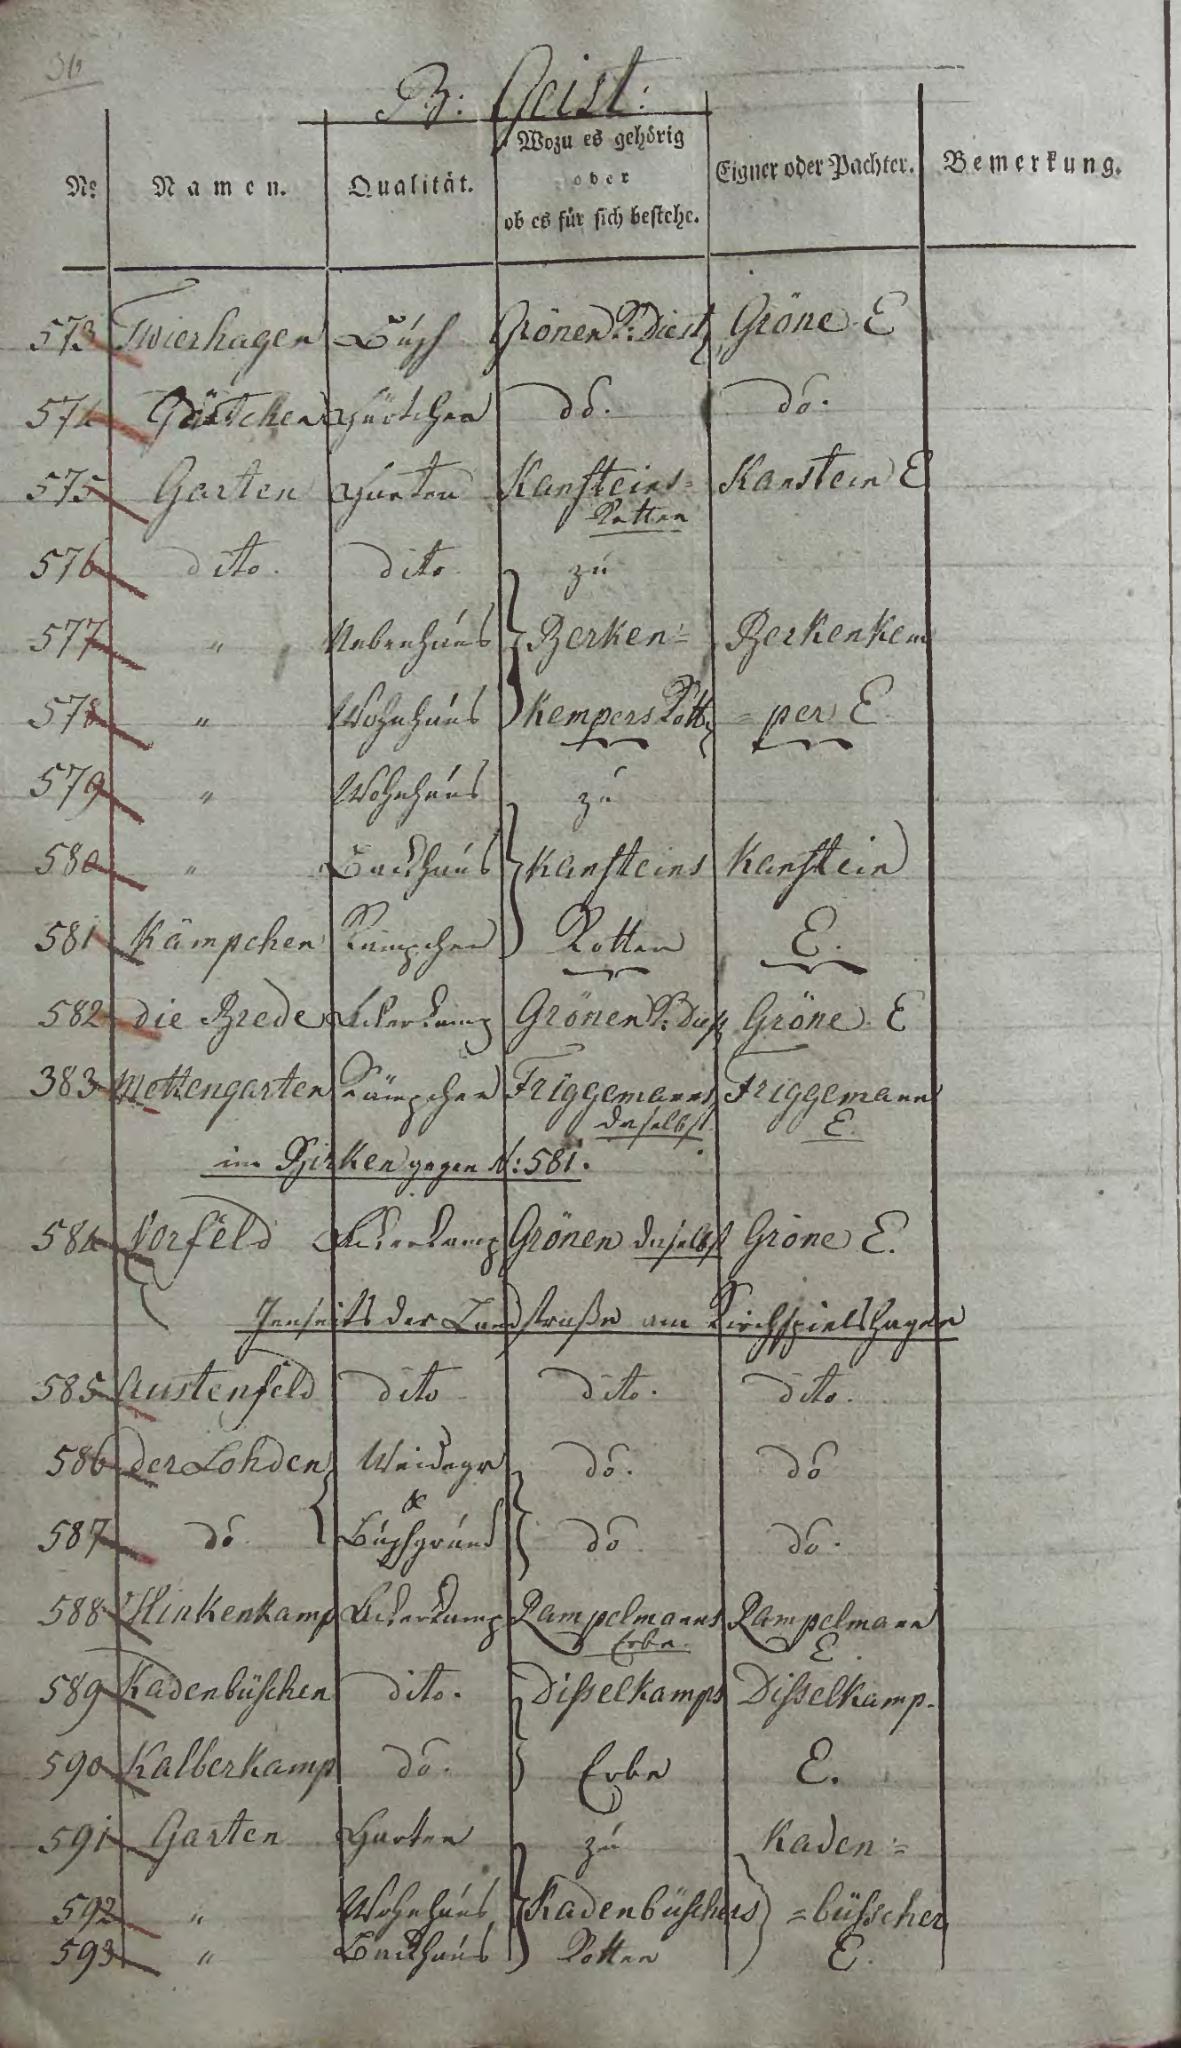 36
B: Geist:
No. Namen. Qualität. Wozu es gehörig oder ob es für sich bestehe. Eigner oder Pachter. Bemerkung.
573 Twierhagen Busch Grönen Gröne E
574 Gärtchen Gärtchen do. do.
575 Garten Garten Kansteins= Kanstein E
Kotten
576 dito. dito zu
577 " Nebenhaus Berken= Berkenkem
578 " Wohnhaus Kempers Kott =per E.
579 " Wohnhaus zu
580 " Backhaus Kansteins Kanstein
581 Kämpchen Kämpchen Kotten E.
582 die Brede Ackerkamp Grönen Gröne E
383 Mettengarten Kämpchen Friggemanns Friggemann
daselbst. E.
im Birken gegen N: 581.
584 Vorfeld Ackerkamp Grönen daselbst Gröne E.
Jenseits der Landstraße am Kirchspielshagen
585 Austenfeld dito dito. dito.
586 der Lohden Weidegr do. do
&
587 do Buschgrund do do.
588 Klinkenkamp Ackerkamp Rampelmanns Rampelmann
Erbe. E.
589 Kadenbüschen dito. Disselkamps Disselkamp.
590 Kalberkamp do. Erbe E.
591 Garten Garten zu Kaden=
592 " Wohnhaus Kadenbüschers =büsscher
593 " Backhaus Kotten E.